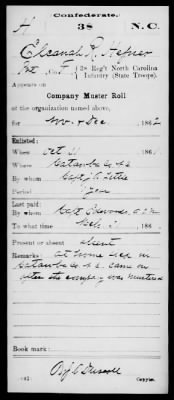 Confederate.
H 38 N.C.
Elcanah R. Hefner
Pvt, Co. F, 38 Reg't North Carolina
Infantry (State Troops).
Appears on
Company Muster Roll
of the organization named above,
for Nov & Dec, 1862
Enlisted:
When Oct 31, 186
Where Catawba Co. N.C.
By whom Capt J. C. Little
Period 1 Year
Last paid:
By whom Capt Edwards
To what time 186
Present or absent absent
Remarks: At home sick in
Catawba Co. N.C. came on
after the company was mustered
Book mark:
Copyist.